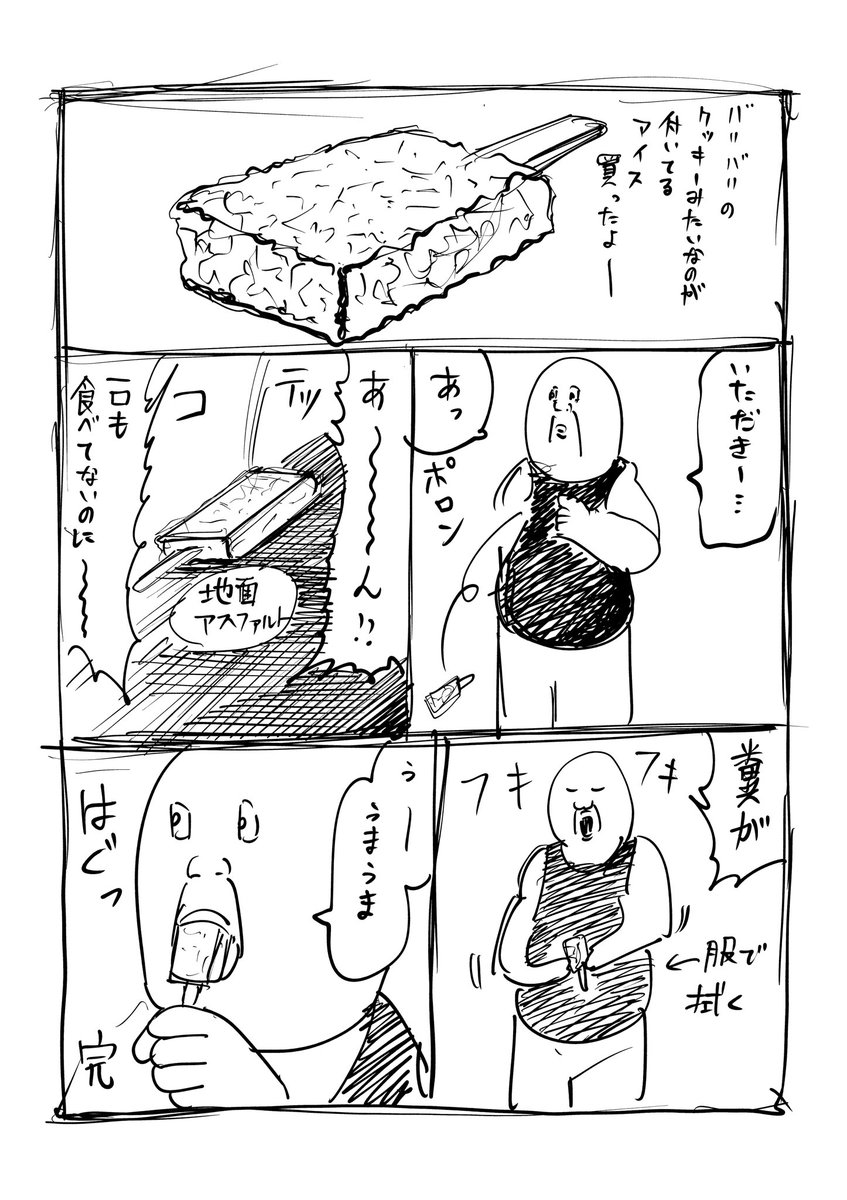 バリバリの
クッキーみたいなのが
付いてる
アイス
買ったよー
いただきー…
あっ
ポロン
あ〜〜ん!?
テッ
コ
地面
アスファルト
一口も
食べてないのに〜〜
糞が
フキ
フキ
←服で
拭く
うー
うまうま
はぐっ
完